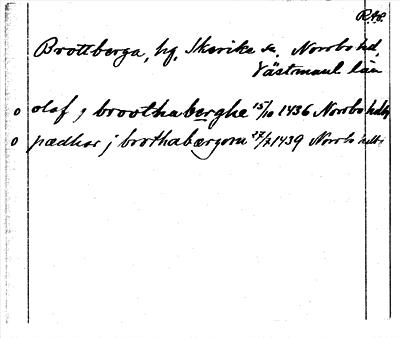 R.A.P.
Brottberga, hg, Skerike sn, Norrbo hd,
Västmanl. län
o olaf j broothaberghe 15/10 1436 Norrbo hdb
o pædhar j brothabærgom 27/7 1439 Norrbo hdb